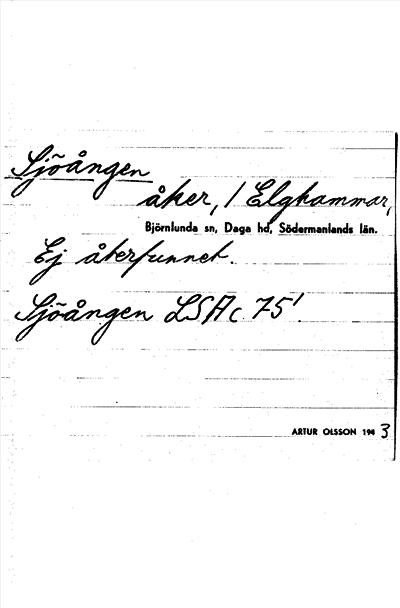 Sjöängen
åker, / Elghammar,
Björnlunda sn, Daga hd, Södermanlands län.
Ej återfunnet.
Sjöängen LSA c 75'.
ARTUR OLSSON 194 3